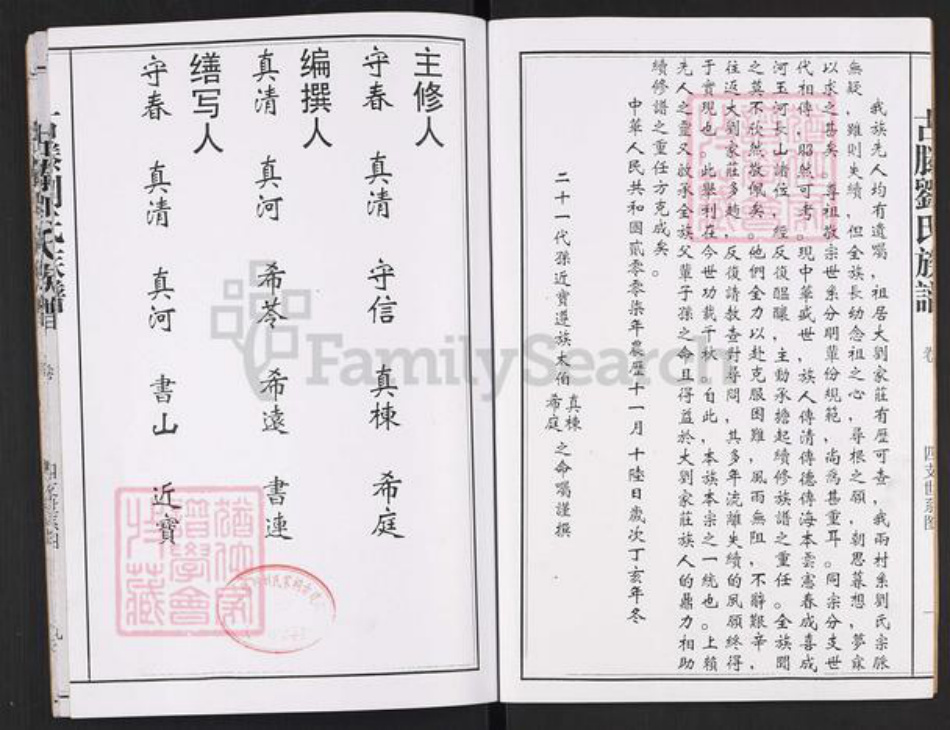 古滕劉氏族譜
卷
四支世系图
我族先人均有遺囑，祖居大劉家莊有歷可查，我兩村系劉氏宗脉
無疑，雖則失續，但全族長幼念祖之心，尋根之願，朝思暮想，夢寐
以求之甚矣。尊祖敬宗世系分明輩份規範，尚爲甚重耳。同宗分支世
代相傳，昭然可考。現中華盛世，族人傳清傳德傳海本雲憲春成喜成
河玉河長山諸位，經反復醞釀，主動承擔起續修族譜之重任。全族聞
之莫不欣然敬佩矣。他們全力以赴克服困難，風雨無阻，不辭艱辛，
往返大劉家莊多趟，反復請教查對尋問，其多年流離失續的夙願終得
于實現也。此舉利在今世功載千秋。自此，本族本宗之一統也。上賴
先人之靈又啟承全族父輩子孫之命且得益於大劉家莊族人的鼎力相助
續修譜之重任方克成矣。
中華人民共和國貳零零柒年農歷十一月十陸日歲次丁亥年冬
二十一代孫近寶遵族太伯真棟希庭之命囑謹撰
主修人
守春 真清 守信 真棟 希庭
编撰人
真清 真河 希苓 希遠 書連
缮写人
守春 真清 真河 書山 近寶
FamilySearch